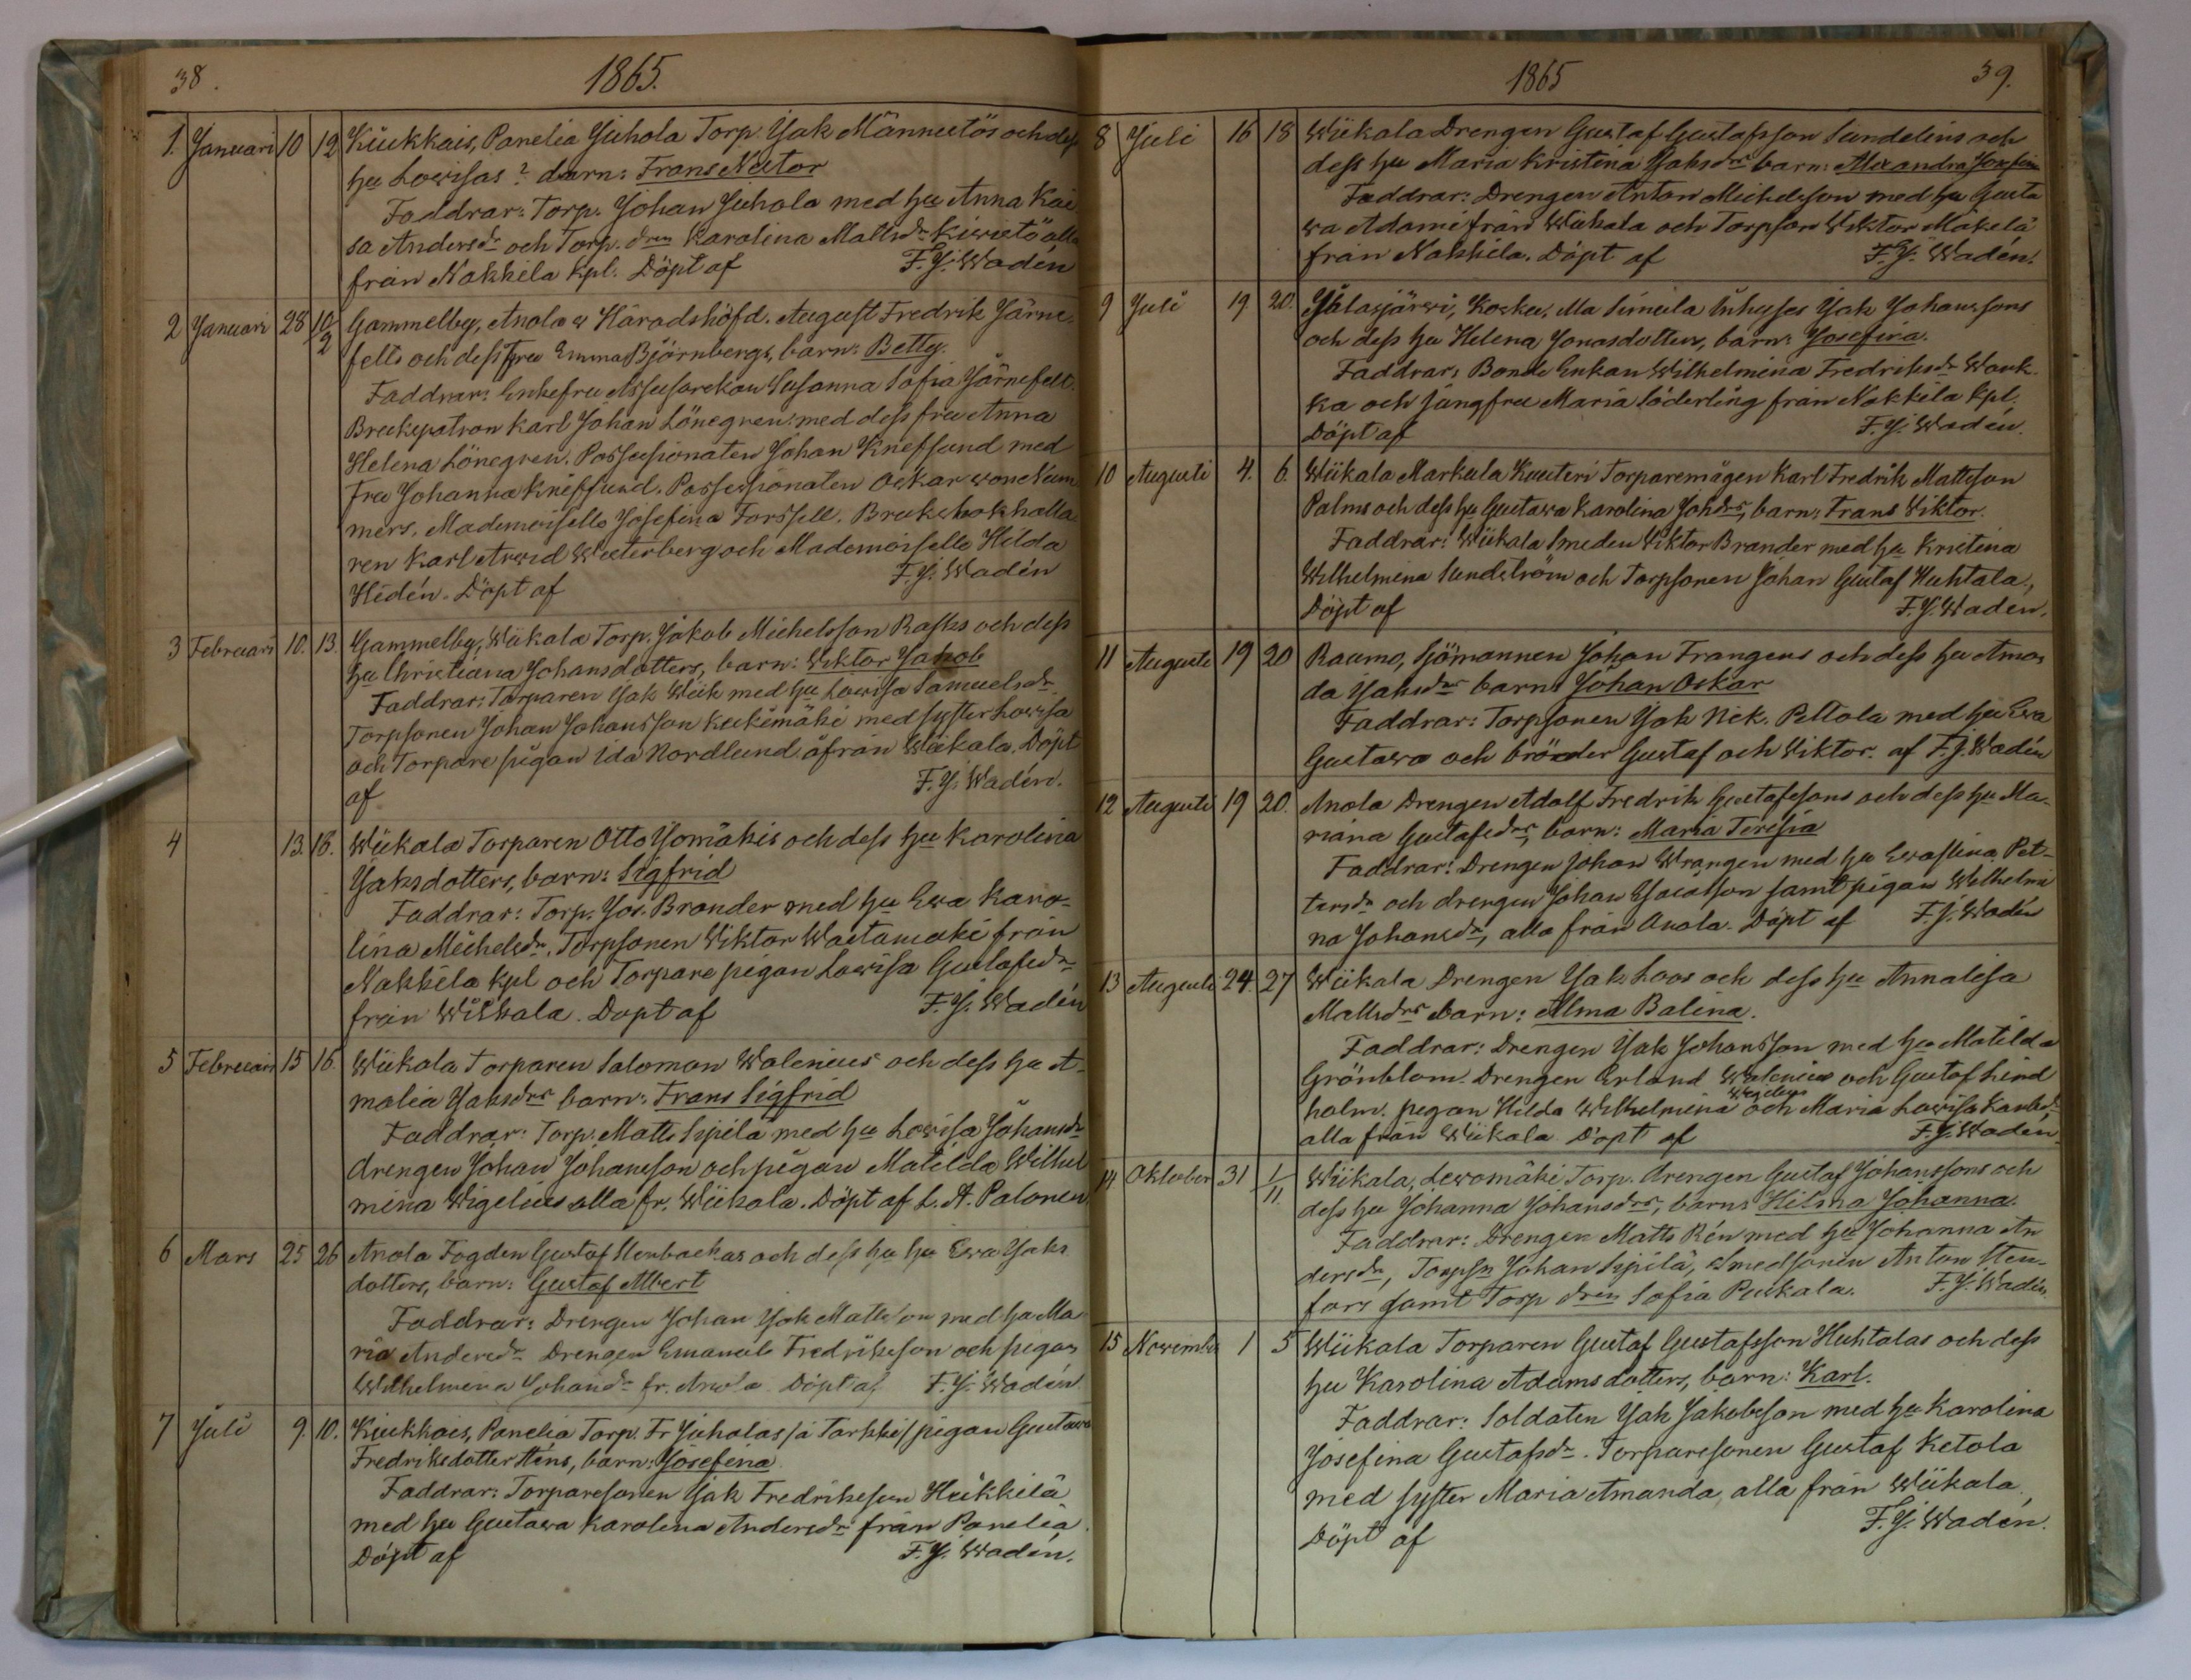 38.
1865.
1. Januari 10 12 Kiukkais, Panelia Juhola Torp. Jak Männistös och dess
hu Lovisas? barn: Frans Nestor
Faddrar: Torp. Johan Juhola med hu Anna Kai
sa Andersdr och Torp. dren Karolina Mattsdr Kiwistö alla
från Nakkila Kpl. Döpt af F. J. Wadén
2 Januari 28 10/2 Gammelby, Anola Häradshöfd. August Fredrik Järne-
felts och dess fru Emma Björnbergs, barn: Betty.
Faddrar: Enkefru Assessorskan Susanna Sofia Järnefelt.
Brukspatron Karl Johan Lönegren med dess fru Anna
Helena Lönegren. Possessionaten Johan Knefsund med
fru Johanna Knefsund. Possessionaten Oskar von Num
mers. Mademoiselle Josefina Forssell. Bruksbokhålla
ren Karl Arvid Westerberg och Mademoiselle Hilda
Hidén. Döpt af F. J. Wadén
3 Februari 10. 13. Gammelby, Wiikala Torp. Jakob Michelsson Rasks och dess
hu Christiana Johansdotters, barn: Viktor Jakob
Faddrar: Torparen Jak Wiik med hu Lovisa Samuelsdr.
Torpsonen Johan Johansson Kukimäki med syster Lovisa
och Torpare pigan Ida Nordlund, från Wiikala. Döpt
af F. J. Wadén.
4 13. 18. Wiikala Torparen Otto Jomäkis och dess hu Karolina
Jaksdotters, barn: Sigfrid
Faddrar: Torp. Jos. Brander med hu Eva Karo-
lina Michelsdr. Torpsonen Viktor Wastamäki från
Nakkila Kpl och Torpare pigan Lovisa Gustafsdr
från Wiikala. Döpt af F. J. Wadén
5 Februari 15 16. Wiikala Torparen Salomon Walenius och dess hu A-
malia Jaksdrs barn: Frans Sigfrid
Faddrar: Torp. Matts Sipilä med hu Lovisa Johansdr
drengen Johan Johansson och pigan Matilda Wilhel
mina Wigelius alla fr. Wiikala. Döpt af L. A. Palonen
6 Mars 25 26 Anola Fogden Gustaf Merbackas och dess hu hu Eva Jaks
dotters, barn: Gustaf Albert
Faddrar: Drengen Johan Jak Mattsson med hu Ma
ria Andersdr Drengen Emanuel Fredriksson och pigan
Wilhelmina Johansdr fr. Anola. Döpt af F. J. Wadén.
7 Juli 9. 10. Kiukkais, Panelia Torp. Fr Juholas /å Tarkki/ pigan Gustava
Fredriksdotter Hens, barn: Josefina.
Faddrar: Torparesonen Jak Fredriksson Heikkilä
med hu Gustava Karolina Andersdr från Panelia.
Döpt af F. J. Wadén.
1865
39.
8 Juli 16 18 Wiikala Drengen Gustaf Gustafsson Sundelins och
dess hu Maria Kristina Jaksdrs barn: Alexandra Josefina
Faddrar: Drengen Anton Michelsson med hu Gusta
va Adami från Wiikala och Torpson Viktor Mäkelä
från Nakkila. Döpt af F. J. Wadén.
9 Juli 19 20. Jalasjärvi, Kosku, Ala Simula Inhyses Jak Johanssons
och dess hu Helena Jonasdotters, barn: Josefina.
Faddrar: Bonde Enkan Wilhelmina Fredriksdr Wouk
ka och jungfru Maria Söderling från Nakkila Kpl.
Döpt af F. J. Wadén.
10 Augusti 4. 6. Wiikala Markula Kuuteri Torparemågen Karl Fredrik Mattsson
Palms och dess hu Gustava Karolina Johdrs, barn: Frans Viktor.
Faddrar: Wiikala Smeden Viktor Brander med hu Kristina
Wilhelmina Sundström och Torpsonen Johan Gustaf Huhtala.,
Döpt af F. J. Wadén.
11 Augusti 19 20 Raumo, Sjömannen Johan Frangens och dess hu Aman
da Jaksdrs barn: Johan Oskar
Faddrar: Torpsonen Jak Nik. Peltola med hu Eva
Gustava och bröder Gustaf och Viktor. af F. J. Wadén
12 Augusti 19 20. Anola Drengen Adolf Fredrik Gustafssons och dess hu Ma-
riana Gustafsdrs, barn: Maria Teresia
Faddrar: Drengen Johan Wrangen med hu Evastina Pet-
tersdr och drengen Johan Jacobsson samt pigan Wilhelmi
na Johansdr, alla från Anola. Döpt af F. J. Wadén
13 Augusti 24. 27 Wiikala Drengen Jak. Loos och dess hu Annalisa
Mattsdrs barn: Alma Balina.
Faddrar: Drengen Jak Johansson med hu Matilda
Grönblom. Drengen Erland Walenius och Gustaf Lind
holm. pigan Hilda Wilhelmina Wigelius och Maria Lovisa Karlsdr
alla från Wiikala. Döpt af F. J. Wadén
14 Oktober 31 1/11. Wiikala, Levomäki Torp. Drengen Gustaf Johanssons och
dess hu Johanna Johansdrs, barn: Hilma Johanna.
Faddrar: Drengen Matts Rén med hu Johanna An
dersdr, Torpsn Johan Sipilä, Smedsonen Anton Sten-
fors samt Torp dren Sofia Puskala. F. J. Wadén.
15 Novemb. 1 5 Wiikala Torparen Gustaf Gustafsson Huhtalas och dess
hu Karolina Adamsdotters, barn: Karl.
Faddrar: Soldaten Jak Jakobsson med hu Karolina
Josefina Gustafsdr. Torparesonen Gustaf Ketola
med syster Maria Amanda, alla från Wiikala.
Döpt af F. J. Wadén.